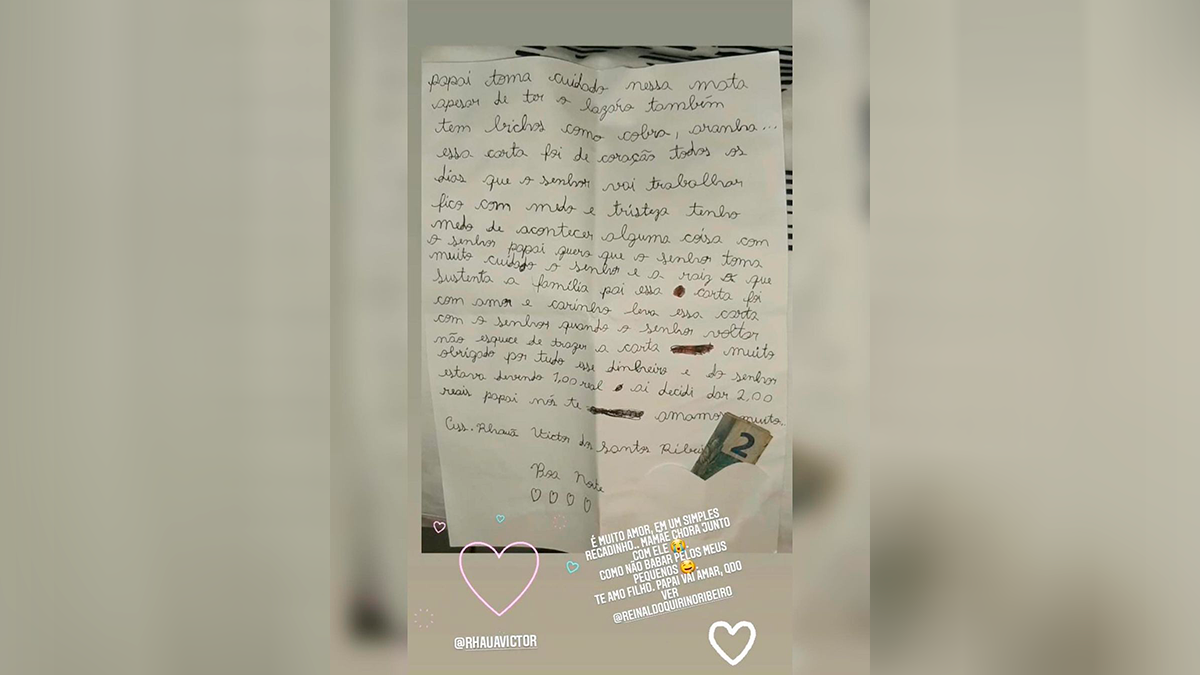 papai toma cuidado nessa mata
apesar de ter o lazáro também
tem bichos como cobra, aranha...
essa carta foi de coração todos os
dias que o senhor vai trabalhar
fico com medo e tristeza tenho
medo de acontecer alguma coisa com
o senhor papai quero que o senhor toma
muito cuidado o senhor e a raiz que
sustenta a família pai essa carta foi
com amor e carinho leva essa carta
com o senhor quando o senhor voltar
não esquece de trazer a carta muito
obrigado por tudo esse dinheiro e do senhor
estava devendo 1,00 real ai decidi dar 2,00
reais papai nós te amamos muito..
Ass. Rhauã Victor dos Santos
Boa Noite
2
É MUITO AMOR, EM UM SIMPLES
RECADINHO.. MAMÃE CHORA JUNTO
COM ELE 😭.
COMO NÃO BABAR PELOS MEUS
PEQUENOS 😅.
TE AMO FILHO. PAPAI VAI AMAR, QDO
VER
@REINALDOQUIRINORIBEIRO
@RHAUAVICTOR